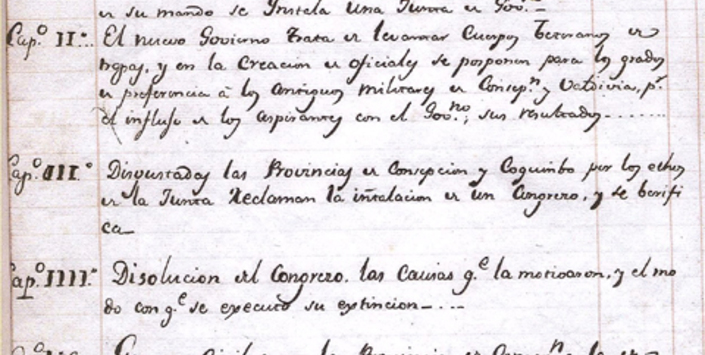 en su mando se Instala una Junta de Gov.no
Cap.o II.o El nuevo Govierno trata de levantar Cuerpos Veteranos de
tropas, y en la Creacion de oficiales se posponen para los grados
de preferencia á los antiguos Militares de Consep.n y Valdivia, p.r
el influjo de los aspirantes con el Gov.no; sus resultados
Cap.o III.o Disgustadas las Provincias de Consepcion y Coquimbo por los echos
de la Junta Reclaman la instalacion de un Congrezo, y se berifi
ca
Cap.o IIII.o Disolucion del Congrezo. las Causas q.e la motivaron, y el mo
do con q.e se executó su extincion